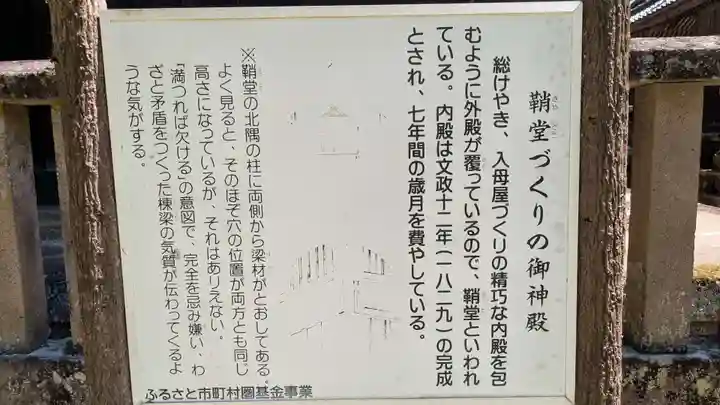 鞘堂づくりの御神殿
さや どう
総けやき、入母屋づくりの精巧な内殿を包
むように外殿が覆っているので、鞘堂といわれ
ている。内殿は文政十二年(一八二九)の完成
とされ、七年間の歳月を費やしている。
※鞘堂の北隅の柱に両側から梁材がとおしてある。
よく見ると、そのほぞ穴の位置が両方とも同じ
高さになっているが、それはありえない。
「満つれば欠ける」の意図で、完全を忌み嫌い、わ
ざと矛盾をつくった棟梁の気質が伝わってくるよ
うな気がする。
ふるさと市町村圏基金事業